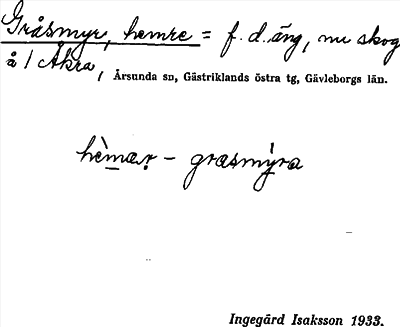 Gråsmyr, hemre = f. d. äng, nu skog
å 1 Åkra, Årsunda sn, Gästriklands östra tg, Gävleborgs län.
hèmar – grasmýra
Ingegärd Isaksson 1933.